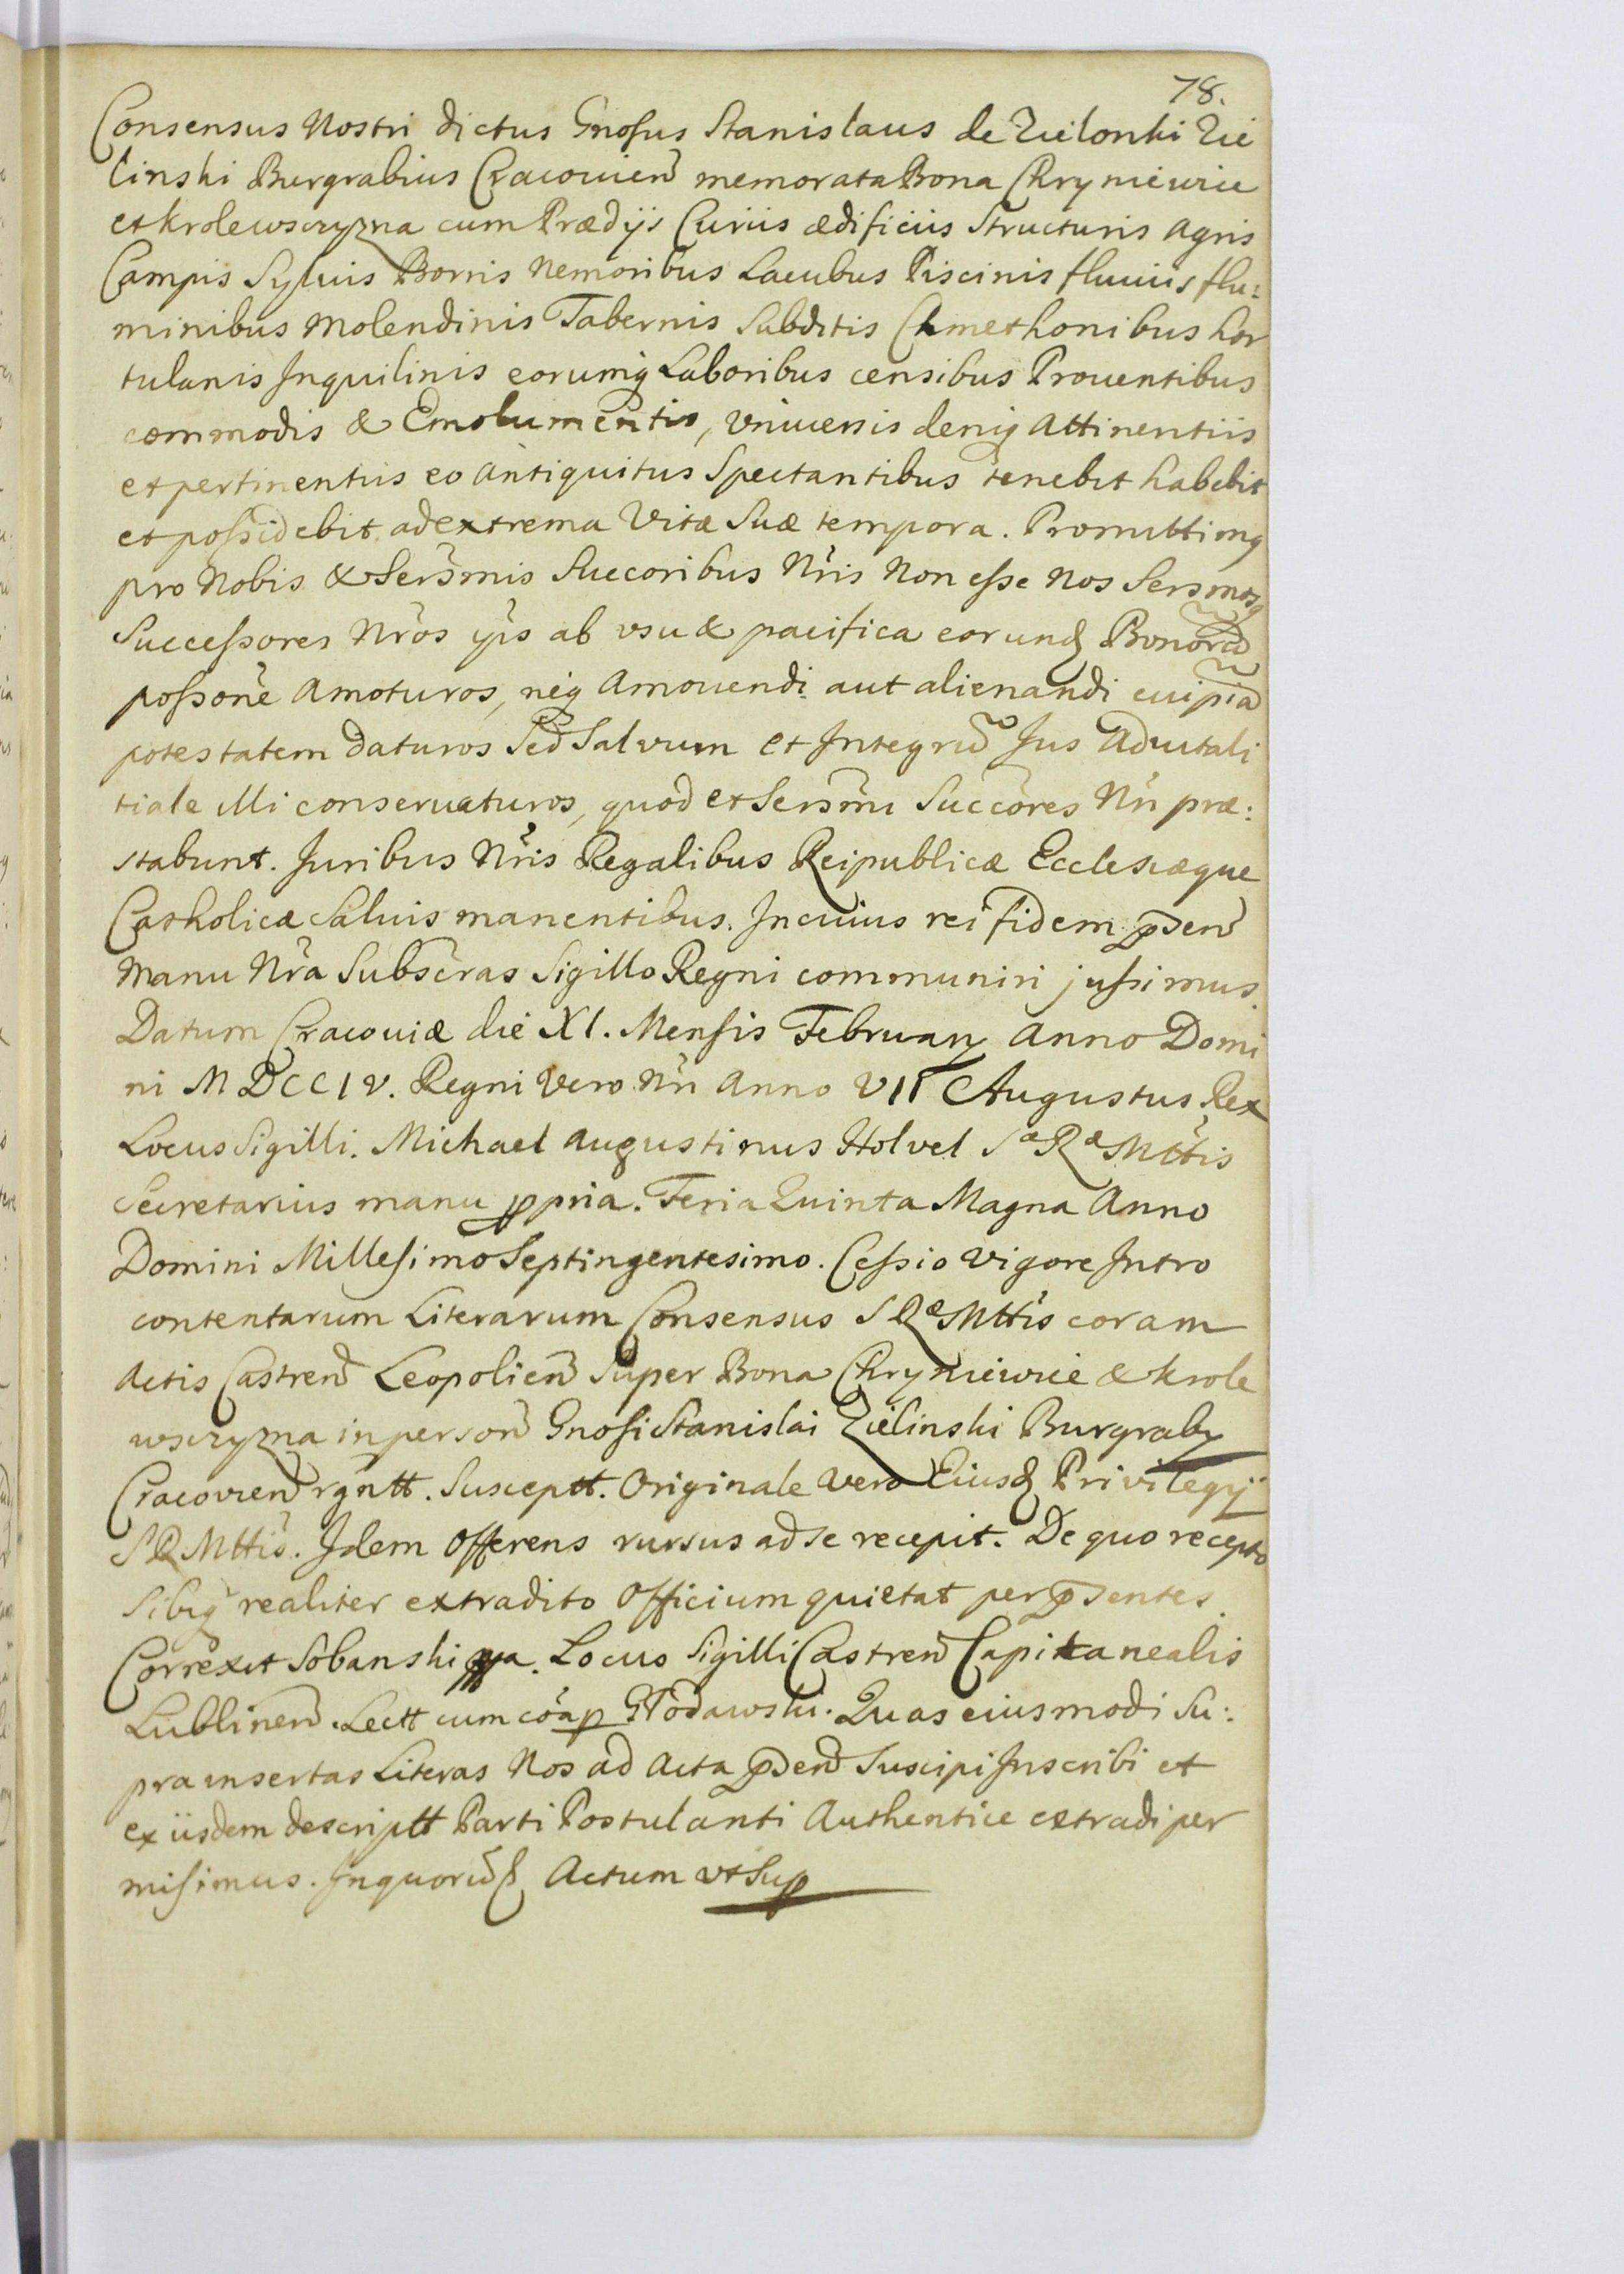 78.
Consensus Nostri dictus Gnosus Stanislaus de Zielonki Zie
linski Burgrabius Cracovien̄ memorata Bona Chryniewice
et krolewszczyzna cum Prædijs Curiis ædificiis Structuris Agris
Campis Sylvis Borris Nemoribus Lacubus Piscinis fluuiis flu:
minibus Molendinis Tabernis Subditis Chmethonibus hor
tulanis Inquilinis eorumq Laboribus censibus Prouentibus
commodis & Emolumentis, Vniuersis deniq Attinentiis
et pertinentiis eo Antiquitus Spectantibus tenebit habebit
et possidebit ad extrema Vitæ Suæ tempora. Promittimq
pro Nobis & Sersmis Succoribus Nris Non esse Nos Sersmosq
Successores Nros ipis ab vsu & pacifica eorund Bonorū
possone Amoturos, neq Amouendi aut alienandi cuipiā
potestatem daturos Sed Salvum et Integrū Jus Aduitali
tiale illi conseruaturos, quod et Sersmi Succores Nri præ:
stabunt. Juribus Nris Regalibus Reipublicæ Ecclesiæque
Catholicæ Saluis manentibus. In cuius rei fidem pden̄
Manu Nra Subscras Sigillo Regni communiri jussimus.
Datum Cracouiæ die XI. Mensis February Anno Domi
ni MDCCIV. Regni Vero Nri Anno VII Augustus Rex
Locus Sigilli. Michael Augustinus Holvel Sæ Ræ Mttis
Secretarius manu ppria. Feria Quinta Magna Anno
Domini Millesimo Septingentesimo. Cessio Vigore Intro
contentarum Literarum Consensus S Ræ Mttis coram
Actis Castren̄ Leopolien̄ Super Bona Chryniewice & krole
wszczyzna in person̄ Gnosi Stanislai Zielinski Burgraby
Cracovien̄ rgntt. Susceptt. Originale Vero Eiusd Privilegÿ
S R Mttis. Idem Offerens rursus ad se recepit. De quo recepto
sibiq realiter extradito Officium quietat per pdentes.
Correxit Sobanski ppa. Locus Sigilli Castren̄ Capitanealis
Lublinen̄. Lectt cum coap Głodawski. Quas eiusmodi Su:
pra insertas Literas Nos ad Acta pden̄ Suscipi Inscribi et
ex iisdem descriptt Parti Postulanti Authentice extradi per
misimus. In quorū Actum vt Sup